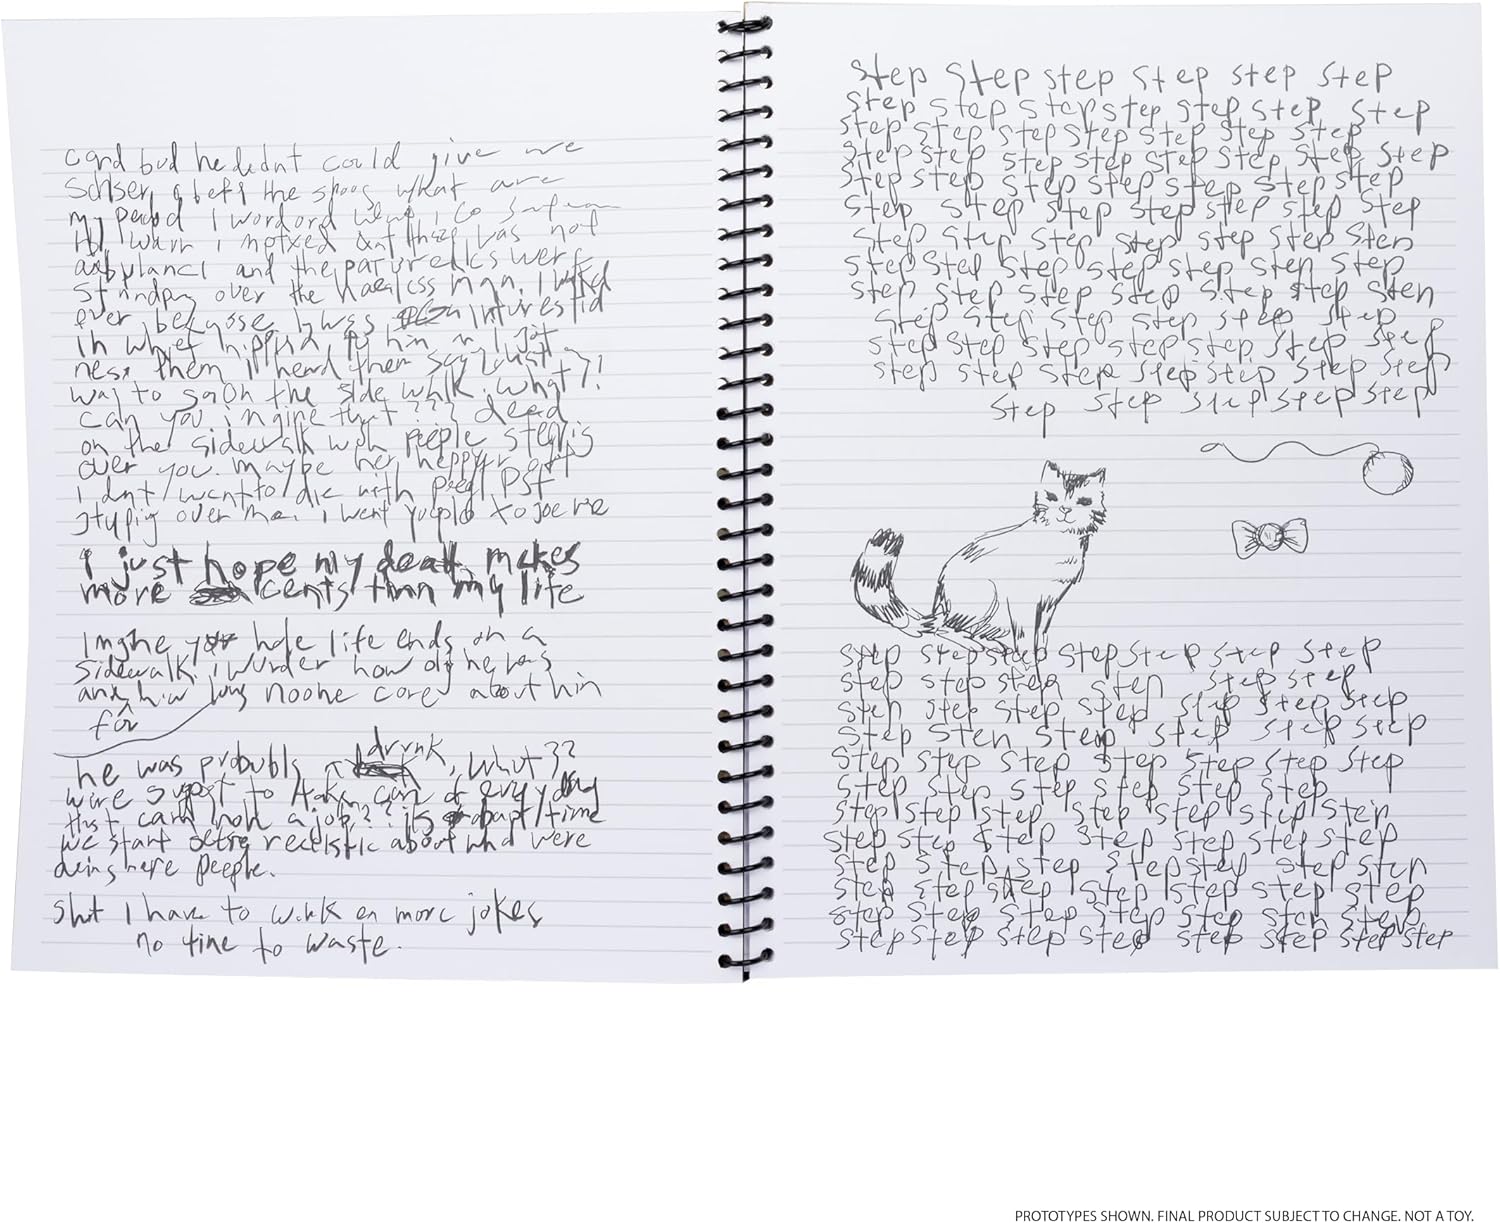 card but he didnt could give me
I left the what are
my period I word ord what I
I not was not
and the were
standing over the man. I walked
over because I was inturestid
in whet hippind to him n I got
next them I heard them say Just
way to go on the side walk. what?!
can you imgine that??? dead
on the sidewalk with peeple steping
over you. maybe hes heppyr off
I dont want to die with peepl JUST
stypig over me. I want people to see me
I just hope my death makes
more cents than my life
Imgne your hole life ends on a
sidewalk. I wunder how old he was
and how long noone cared about him
for
drunk
he was probubly , what??
were supost to take care of everybody
that can't hold a job?? its abapt time
we start being about who were
deing here peeple.
shit I have to work on more jokes
no time to waste.
step step step step step step
step step step step step step step
step step step step step step step
step step step step step step step
step step step step step step step
step step step step step step step
step step step step step step step
step step step step step step step
step step step step step step step
step step step step step step
step step step step step step step
step step step step step step step
step step step step step
step step step step step step step
step step step step step step
step step step step step step step
step step step step step step
step step step step step step step
step step step step step step
step step step step step step step
step step step step step step step
step step step step step step step
step step step step step step step
step step step step step step step
step step step step step step step step
PROTOTYPES SHOWN. FINAL PRODUCT SUBJECT TO CHANGE. NOT A TOY.